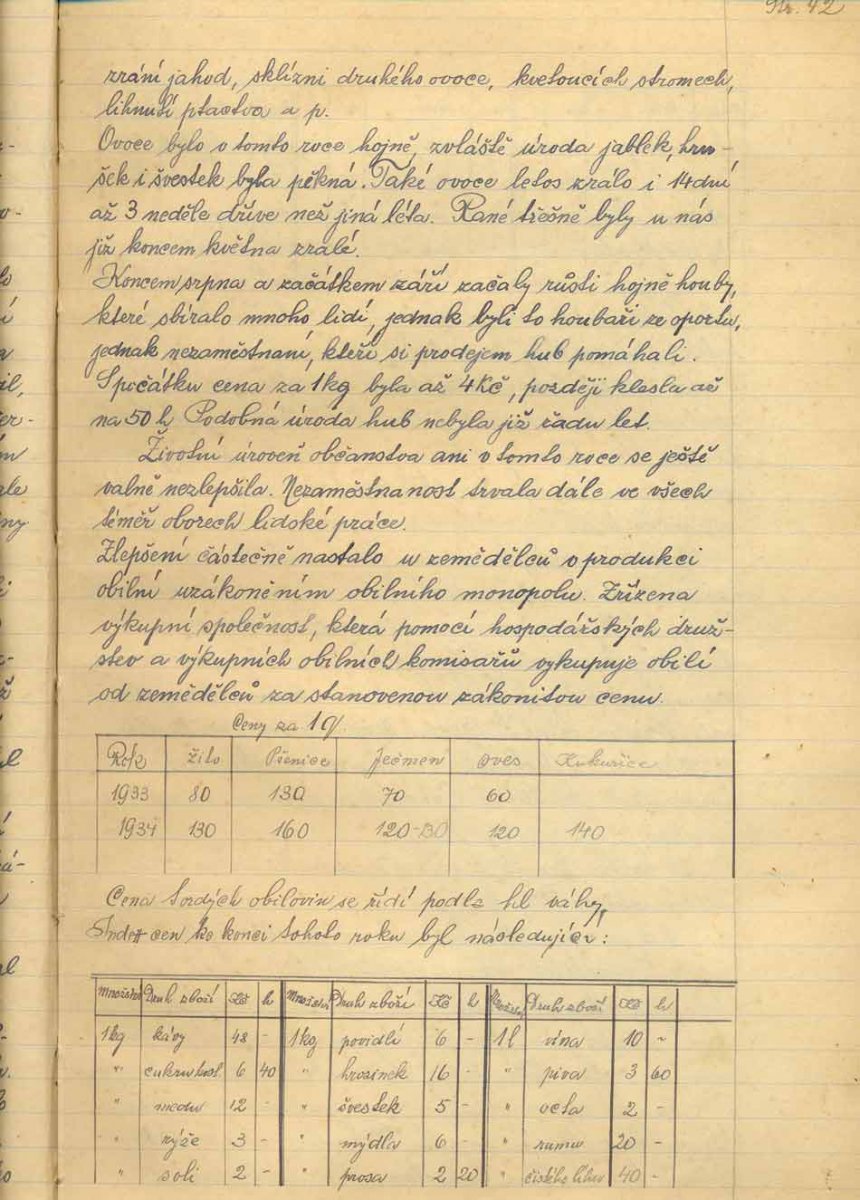 Str. 42
zrání jahod, sklízni druhého ovoce, kvetoucích stromech,
líhnutí ptactva a p.
Ovoce bylo v tomto roce hojně, zvláště úroda jablek, hru-
šek i švestek byla pěkná. Také ovoce letos zrálo i 14 dní
až 3 neděle dříve než jiná léta. Rané třešně byly u nás
již koncem května zralé.
Koncem srpna a začátkem září začaly růsti hojně houby,
které sbíralo mnoho lidí, jednak byli to houbaři ze sportu,
jednak nezaměstnaní, kteří si prodejem hub pomáhali.
Spočátku cena za 1 kg byla až 4 Kč, později klesla až
na 50 h Podobná úroda hub nebyla již řadu let.
Životní úroveň občanstva ani v tomto roce se ještě
valně nezlepšila. Nezaměstnanost trvala dále ve všech
téměř oborech lidské práce.
Zlepšení částečně nastalo u zemědělců v produkci
obilní uzákoněním obilního monopolu. Zřízena
výkupní společnost, která pomocí hospodářských druž-
stev a výkupních obilních komisařů vykupuje obilí
od zemědělců za stanovenou zákonitou cenu.
Ceny za 1 q
Rok Žito Pšenice Ječmen Oves Kukuřice
1933 80 130 70 60
1934 130 160 120-130 120 140
Cena tvrdých obilovin se řídí podle hl váhy,
Index cen ke konci tohoto roku byl následující:
Množství Druh zboží Kč h Množství Druh zboží Kč h Množství Druh zboží Kč h
1 kg kávy 48 - 1 kg povidlí 6 - 1 l vína 10 -
" cukru 6 40 " hrozinek 16 - " piva 3 60
" medu 12 - " švestek 5 - " octa 2 -
" rýže 3 - " mýdla 6 - " rumu 20 -
" soli 2 - " prosa 2 20 " čistého lihu 40 -